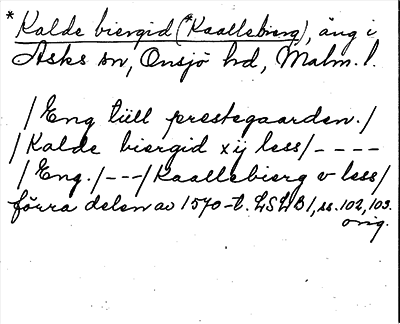 *Kalde biergid (*Kaallebierg), äng i
Asks sn, Onsjö hd, Malm. l.
/Eng tiill prestegaarden./
/Kalde biergid xij less/----
/Eng./---/Kaallebierg v less/
förra delen av 1570-t. LSLB1, ss. 102, 103.
orig.